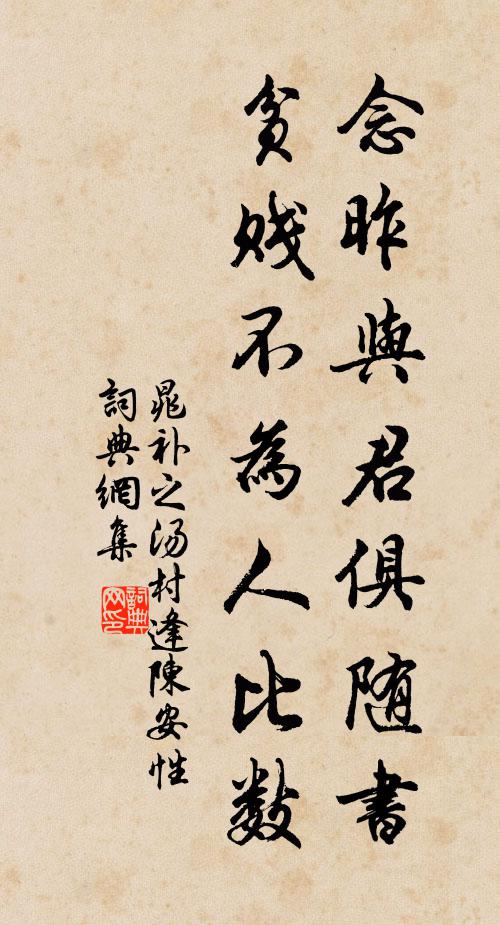 念昨與君俱随書
貧賤不為人比数
晁补之汤村逢陳安性
詞典網集
詞典
网印